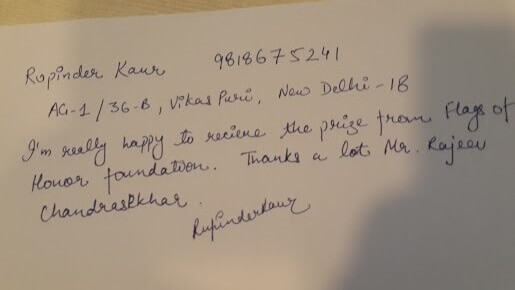 Rupinder Kaur 9818675241
AG-1/36-B, Vikas Puri, New Delhi-18
I'm really happy to recieve the prize from Flags of
Honor foundation. Thanks a lot Mr. Rajeev
Chandrasekhar.
Rupinderkaur